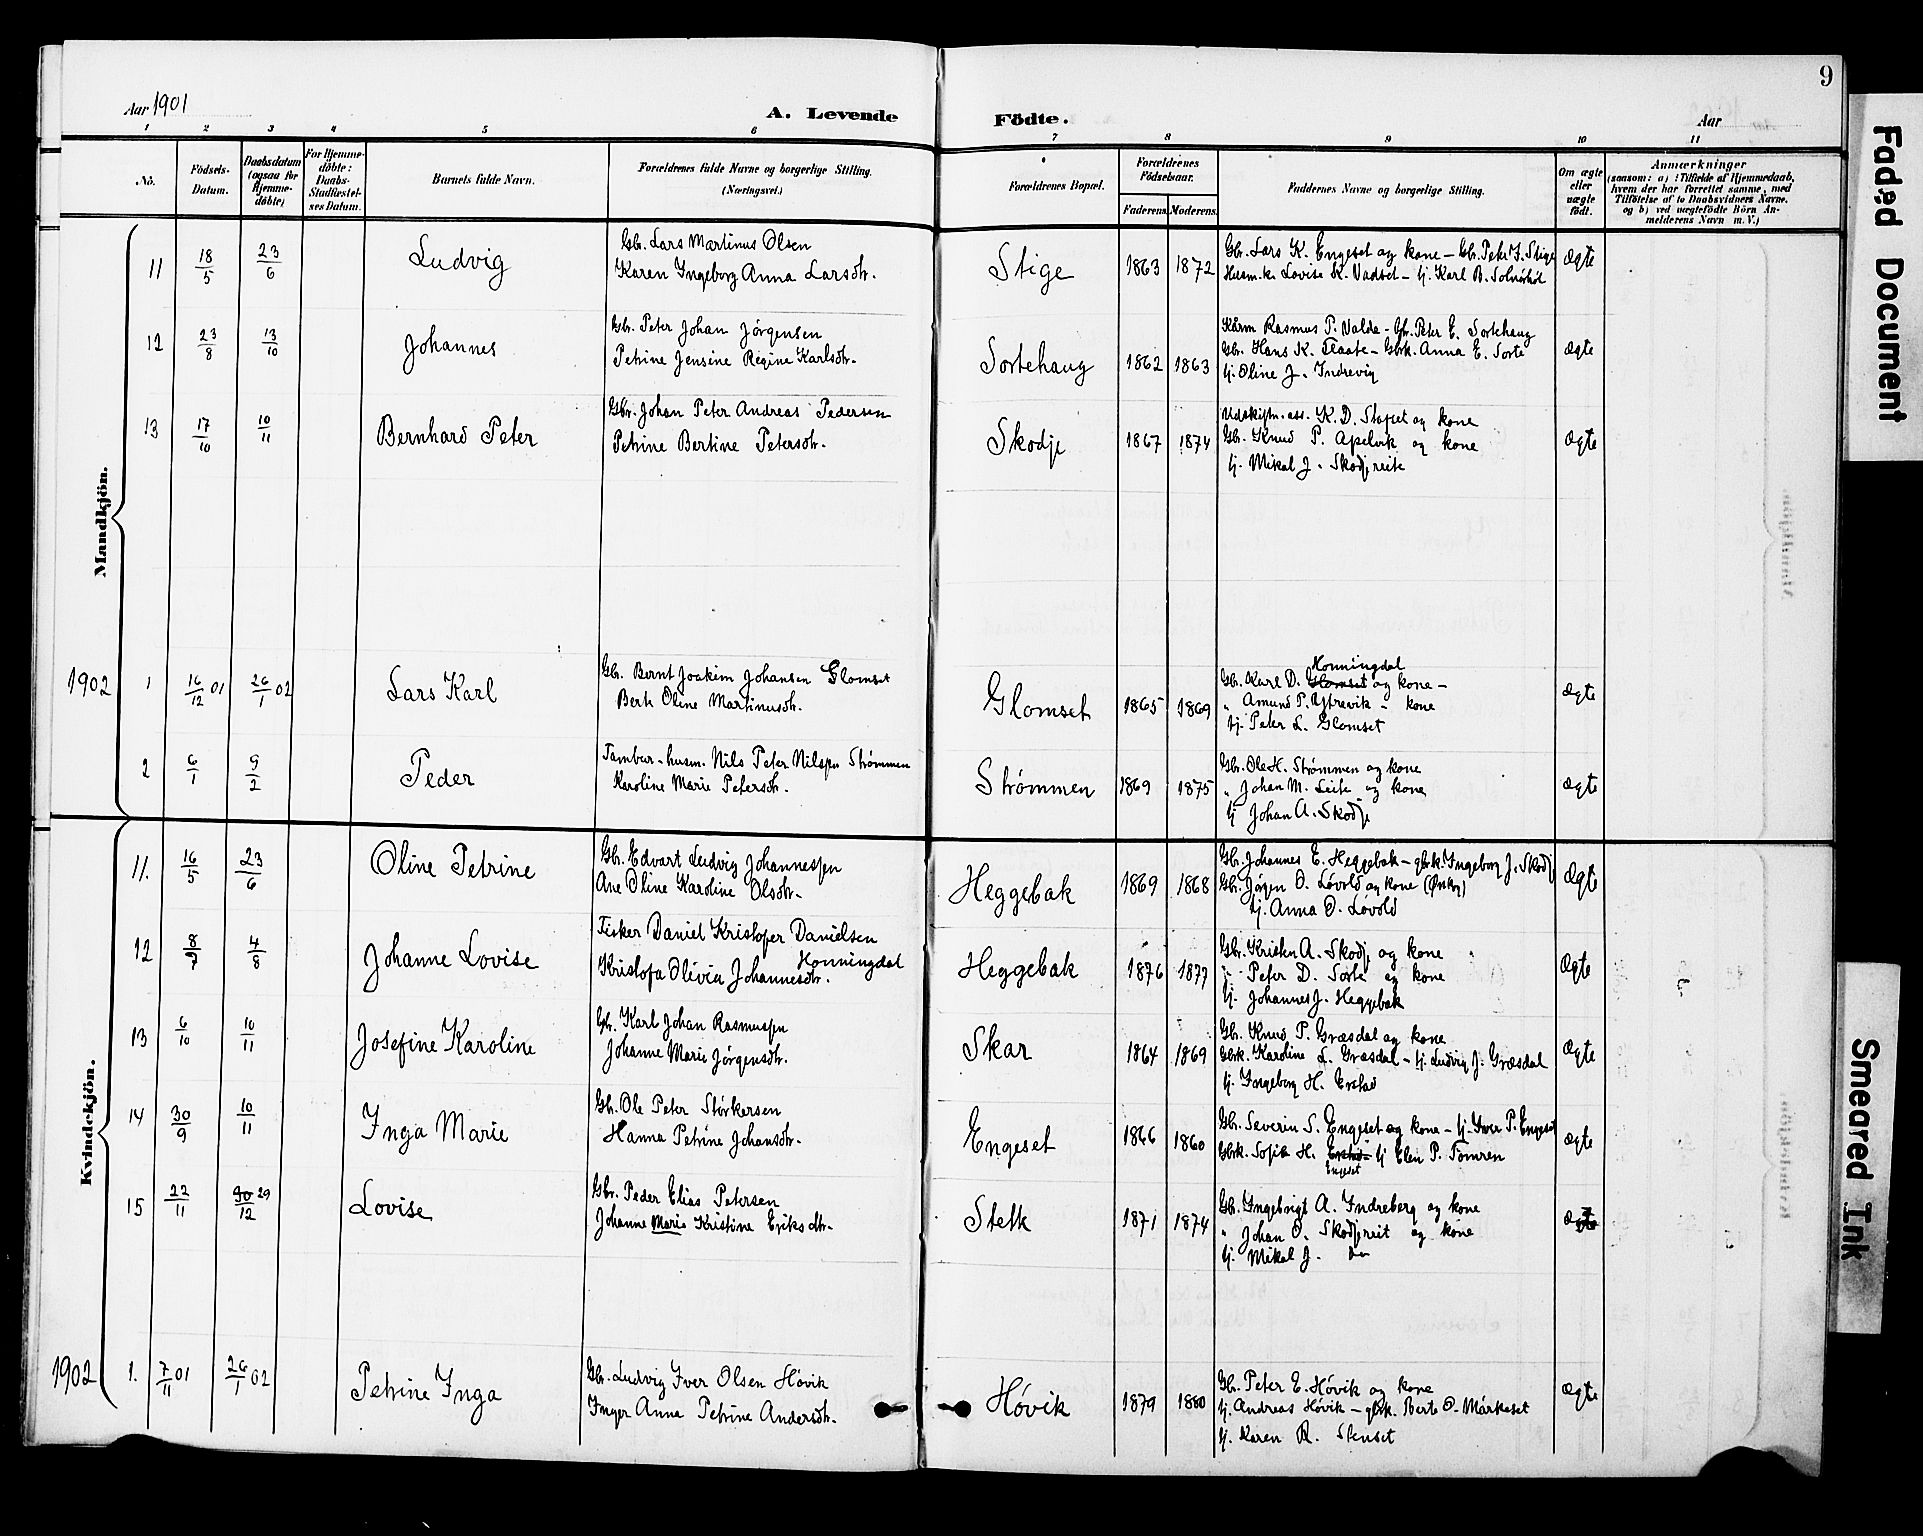 9
Aar 1901
A. Levende Födte.
Aar
1 2 3 4 5 6 7 8 9 10 11
No.
Födsels-Datum.
Daabsdatum (ogsaa for Hjemme-döbte)
For Hjemme-döbte: Daabs-Stadfæstel-ses Datum.
Barnets fulde Navn.
Forældrenes fulde Navne og borgerlige Stilling. (Næringsvei.)
Forældrenes Bopæl.
Forældrenes Födselsaar.
Faderens. Moderens.
Faddernes Navne og borgerlige Stilling.
Om ægte eller uægte født.
Anmærkninger
(saasom: a) i Tilfælde af Hjemmedaab,
hvem der har forrettet samme, med
Tilföielse af to Daabsvidners Navne.
og b) ved uægtefödte Börn An-
melderens Navn m. V.)
Mandkjön.
11 18/5 23/6 Ludvig
Gbr. Lars Martinus Olsen
Karen Ingeborg Anna Larsdtr.
Stige 1863 1872
Gbr. Lars K. Engeset og kone – Gbr. Peter J. Stige
Husm.k. Lovise K. Vadset – tj. Karl B. Solnørhol
Ægte
12 23/8 13/10 Johannes
Gbr. Peter Johan Jörgensen
Petrine Jensine Regine Karlsdtr.
Sortehaug 1862 1863
Kårm Rasmus P. Valde – Gbr. Peter E. Sortehaug
Gbr. Hans K. Flaate – Gbrk. Anna E. Sorte
tj. Oline J. Indrevig
Ægte
13 17/10 10/11 Bernhard Peter
Gbr. Johan Peter Andreas Pedersen
Petrine Bertine Petersdtr.
Skodje 1867 1874
Udskiftn. ass. K. D. Stafset og kone
Gbr. Knud P. Apelvik og kone
tj. Mikal J. Skodjereite
Ægte
1902 1 16/12 01 26/1 02 Lars Karl
Gbr. Bernt Joakim Johansen Glomset
Berte Oline Martinusdtr.
Glomset 1865 1869
Honningdal
Gbr. Karl D. Glomset og kone –
" Amund P. Ytrevik – kone
tj. Peter L. Glomset
Ægte
2 6/1 9/2 Peder
Tambur-husm. Nils Peter Nilsen Strømmen
Karoline Marie Petersdtr.
Strømmen 1869 1875
Gbr. Ole H. Strømmen og kone
" Johan M. Leite og kone
tj Johan A. Skodje
Ægte
Kvindekjön.
11. 16/5 23/6 Oline Petrine
Gbr. Edvart Ludvig Johannessen
Ane Oline Karoline Olsdtr.
Heggebak 1869 1868
Gbr. Johannes E. Heggebak – gbrk. Ingeborg J. Skodj
Gbr. Jörgen O. Lövold og kone (Ørskog)
tj. Anna O. Lövold
Ægte
12 8/7 4/8 Johanne Lovise
Fisker Daniel Kristofer Danielsen
Honningdal
Kristofa Olivia Johannesdtr.
Heggebak 1876 1877
Gbr. Kristen A. Skodj og kone
" Peter D. Sorte og kone
tj. Johannes J. Heggebak
Ægte
13 6/10 10/11 Josefine Karoline
Gbr. Karl Johan Rasmussen
Johanne Marie Jørgensdtr.
Skar 1864 1869
Gbr. Knud P. Græsdal og kone
Gbrk. Karoline L. Græsdal – tj. Ludvig J. Græsdal
tj. Ingeborg H. Erstad
Ægte
14 30/9 10/11 Inga Marie
Gbr. Ole Peter Størkersen
Hanna Petrine Johansdtr.
Engeset 1866 1860
Gbr. Severin S. Engeset og kone – tj. Iver P. Engeset
Gbrk. Sofie H. Erstad – tj Elen P. Tomren
Engeset
Ægte
15 22/11 30/12 29 Lovise
Gbr. Peder Elias Petersen
Johanne Marie Kristine Eriksdtr.
Stette 1871 1874
Gbr. Ingebrigt A. Indreberg og kone
" Johan O. Skodjereit og kone
tj. Mikal J. Do
Ægte
1902 1. 7/11 01 26/1 02 Petrine Inga
Gbr. Ludvig Iver Olsen Høvik
Inger Anna Petrine Andersdtr.
Høvik 1879 1880
Gbr. Peter E. Høvik og kone
tj. Andreas Høvik – gbrk. Berte O. Märkeset
tj. Karen R. Stenset
Ægte
Faded Document
Smeared Ink